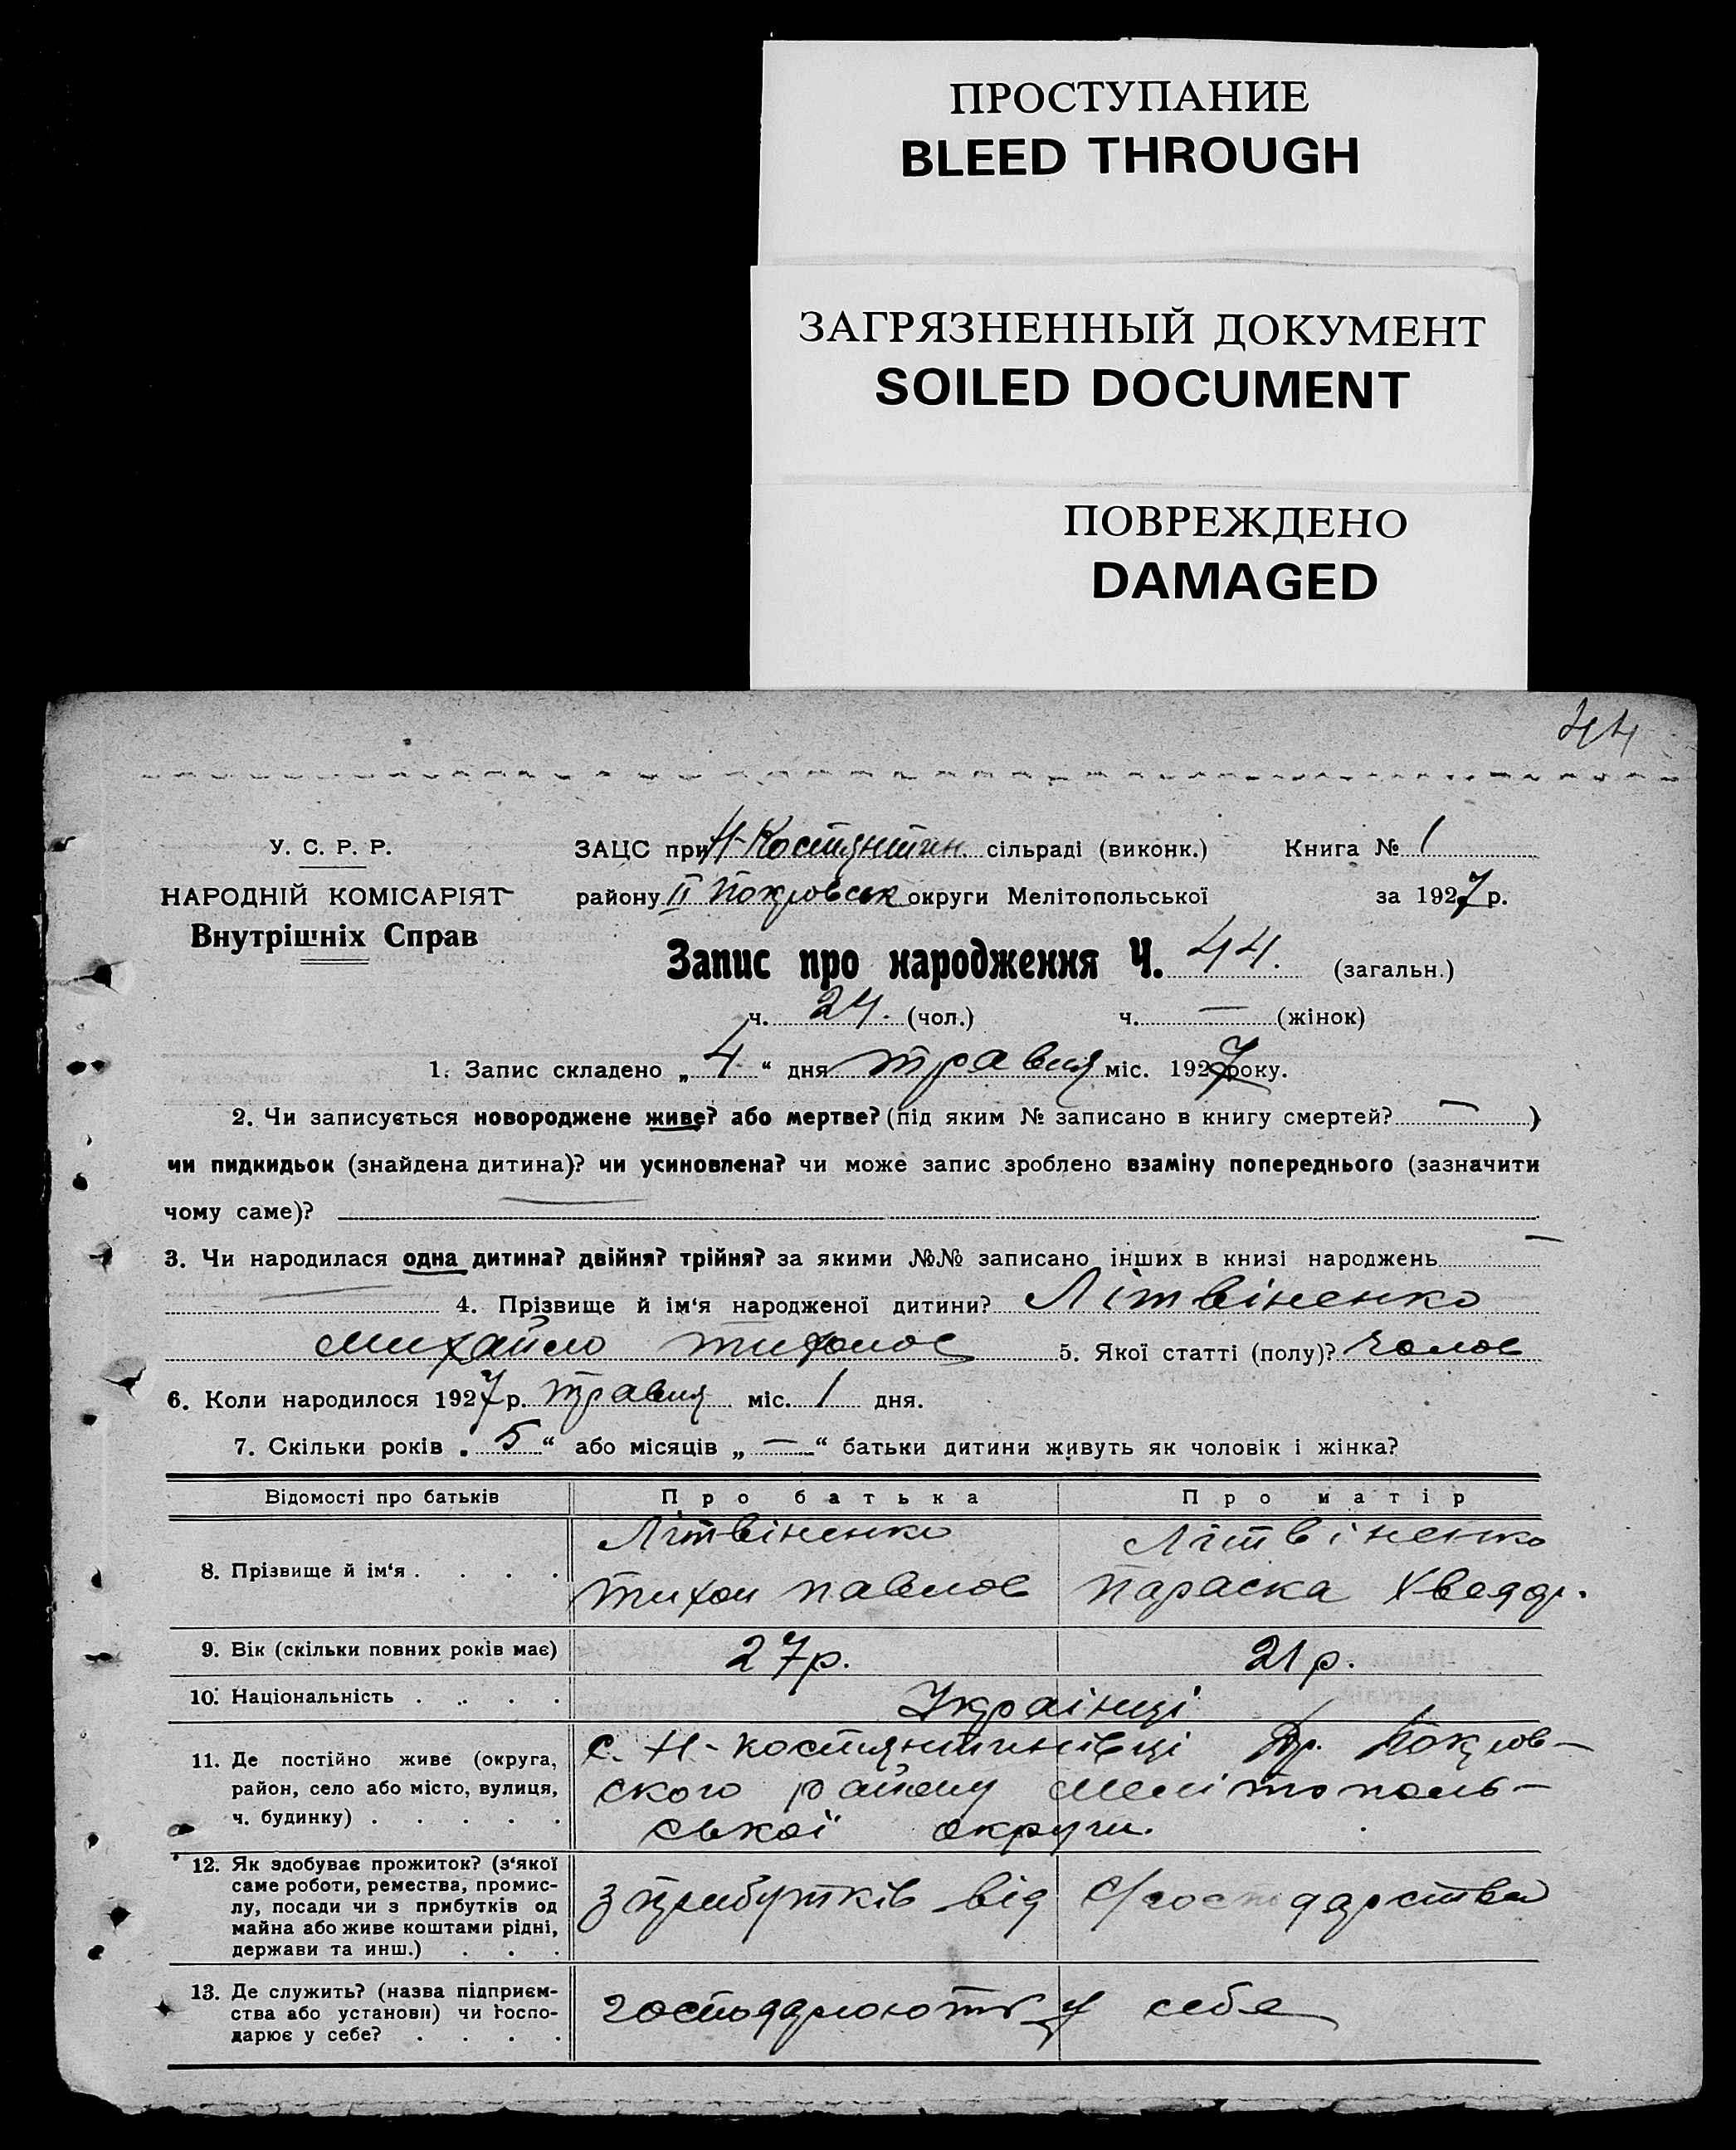 ПРОСТУПАНИЕ
BLEED THROUGH
ЗАГРЯЗНЕННЫЙ ДОКУМЕНТ
SOILED DOCUMENT
ПОВРЕЖДЕНО
DAMAGED
44
У. С. Р. Р.
НАРОДНІЙ КОМІСАРІЯТ
Внутрішніх Справ
ЗАЦС при Н-Костянтин. сільраді (виконк.)
Книга № 1
району ІІ Покровськ округи Мелітопольської
за 1927 р.
Запис про народження Ч. 44. (загальн.)
ч. 24. (чол.) ч. — (жінок)
1. Запис складено „ 4 “ дня травня міс. 1927 року.
2. Чи записується новороджене живе? або мертве? (під яким № записано в книгу смертей? — )
чи пидкидьок (знайдена дитина)? чи усиновлена? чи може запис зроблено взаміну попереднього (зазначити
чому саме)?
3. Чи народилася одна дитина? двійня? трійня? за якими №№ записано інших в книзі народжень —
4. Прізвище й ім‘я народженої дитини? Літвіненко
Михайло Тихонов 5. Якої статті (полу)? чолов
6. Коли народилося 1927 р. травня міс. 1 дня.
7. Скільки років „ 5 “ або місяців „ — “ батьки дитини живуть як чоловік і жінка?
Відомості про батьків Про батька Про матір
8. Прізвище й ім‘я . . . .
Літвіненко
Тихон Павлов
Літвіненко
Параска Хведдр.
9. Вік (скільки повних років має) 27 р. 21 р.
10. Національність . . . . Українці
11. Де постійно живе (округа,
район, село або місто, вулиця,
ч. будинку) . . . . .
с. Н-Костянтинівці Др. Покров-
ского району Мелітополь-
ської округи.
12. Як здобуває прожиток? (з‘якої
саме роботи, ремества, промис-
лу, посади чи з прибутків од
майна або живе коштами рідні,
держави та инш.) . . .
з прибутків від с/господарства
13. Де служить? (назва підприєм-
ства або установи) чи госпо-
дарює у себе? . . . .
господарюють у себе